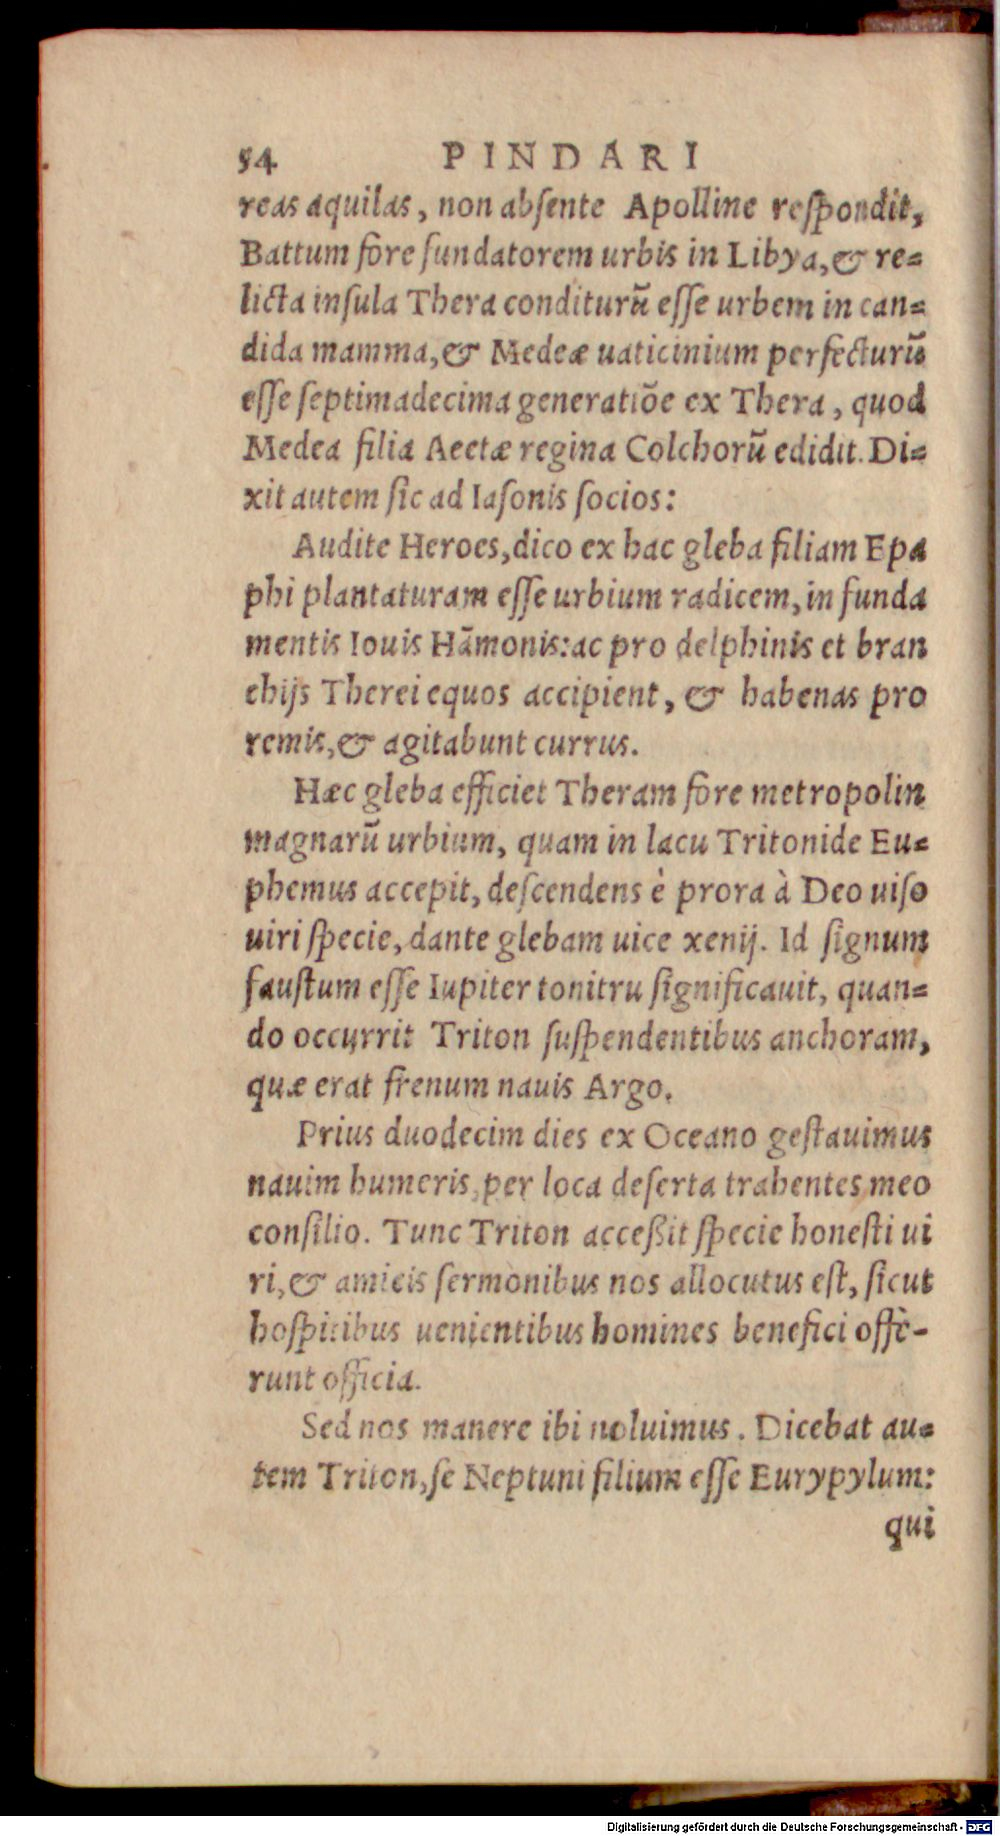 54 PINDARI
reas aquilas, non absente Apolline respondit,
Battum fore fundatorem urbis in Libya, & re=
licta insula Thera conditurũ esse urbem in can=
dida mamma, & Medeæ uaticinium perfecturũ
esse septimadecima generatiõe ex Thera, quod
Medea filia Aeetæ regina Colchorũ edidit. Di=
xit autem sic ad Iasonis socios:
Audite Heroes, dico ex hac gleba filiam Epa
phi plantaturam esse urbium radicem, in funda
mentis Iouis Hãmonis: ac pro delphinis et bran
chijs Therei equos accipient, & habenas pro
remis, & agitabunt currus.
Hæc gleba efficiet Theram fore metropolin
magnarũ urbium, quam in lacu Tritonide Eu=
phemus accepit, descendens è prora à Deo uiso
uiri specie, dante glebam uice xenij. Id signum
faustum esse Iupiter tonitru significauit, quan=
do occurrit Triton suspendentibus anchoram,
quæ erat frenum nauis Argo.
Prius duodecim dies ex Oceano gestauimus
nauim humeris, per loca deserta trahentes meo
consilio. Tunc Triton acceßit specie honesti ui
ri, & amicis sermonibus nos allocutus est, sicut
hospitibus uenientibus homines benefici offe-
runt officia.
Sed nos manere ibi noluimus. Dicebat au=
tem Triton, se Neptuni filium esse Eurypylum:
qui
Digitalisierung gefördert durch die Deutsche Forschungsgemeinschaft - DFG